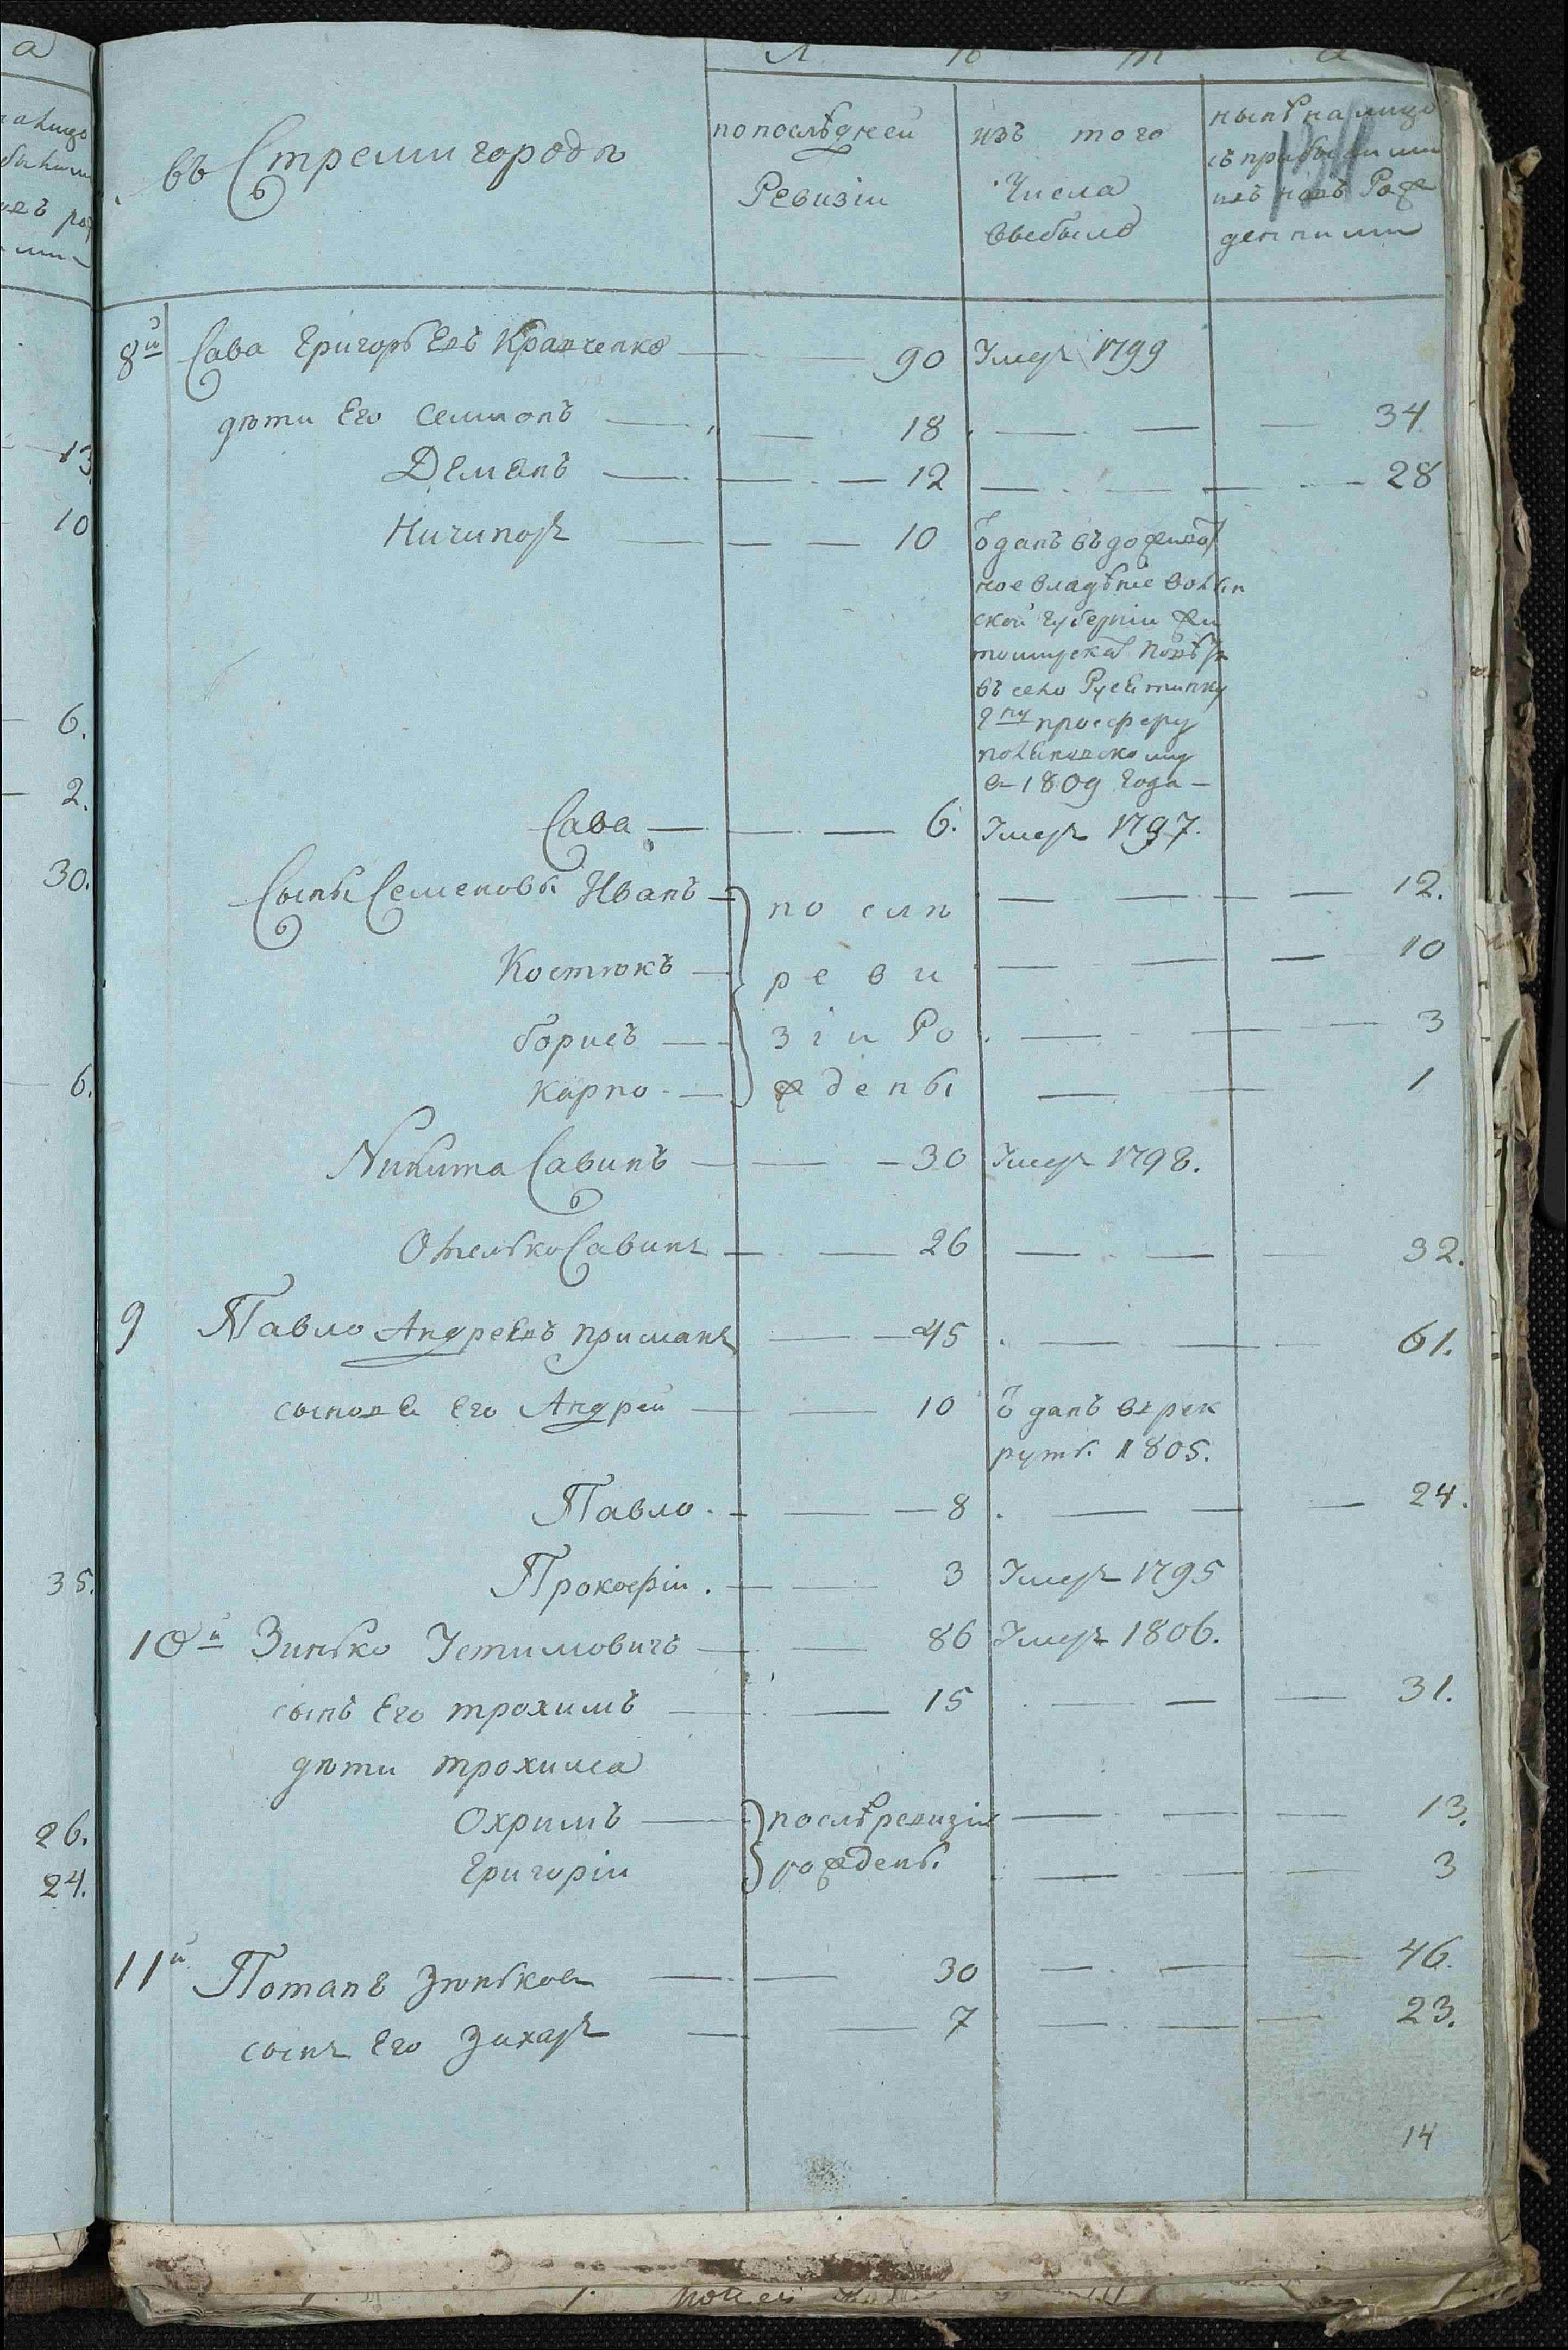 Л ѣ т а
въ Стремигородѣ
по послѣдней Ревизіи
изъ того Числа Выбыло
нынѣ на лицо съ прибылыми изъ новъ Рожденными
8й Сава Григорьевъ Кравченко — 90 Умеръ 1799
дѣти Его Семионъ — 18 — 34
Демянъ — 12 — 28
Ничипоръ — 10 ѿданъ въ
ное владѣніе Волын
ской Губерніи Жи
томирска Повѣ
въ село
пну
в 1809 Года —
Сава — 6. Умеръ 1797.
Сыны Семеновы Иванъ — послѣ — 12.
Костюкъ — реви — 10
борисъ — зіи Ро — 3
карпо — ждены — 1
Никита Савинъ — 30 Умеръ 1798.
Омелько Савинъ — 26 — 32.
9 Павло Андреевъ приманъ — 45 — 61.
сыновѣ Его Андрей — 10 ѿданъ въ рек
руты 1805.
Павло — 8 — 24.
Прокофіи — 3 Умеръ 1795
10й Зинько Устимовичъ — 86 Умеръ 1806.
сынъ Его трохимъ — 15 — 31.
дѣти трохима
Охримъ — послѣ ревизіи — 13.
Григоріи рождены — 3
11й Потапъ Зюньковъ — 30 — 46.
сынъ Его Захаръ — 7 — 23.
14